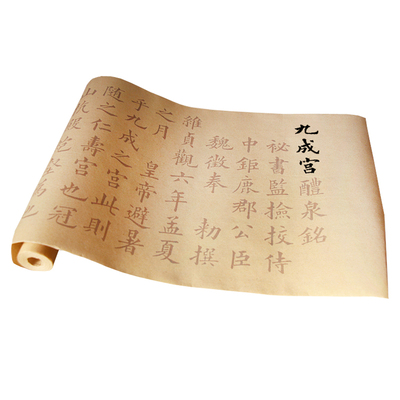 九成宫醴泉銘
祕書監撿挍侍
中鉅鹿郡公臣
魏徵奉 勅撰
維貞觀六年孟夏
之月 皇帝避暑
乎九成之宮此則
隨之仁壽宮也冠
山抗